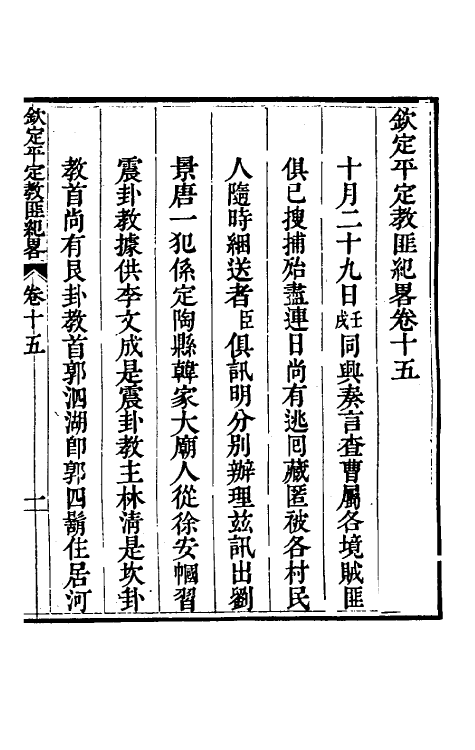 欽定平定教匪紀畧卷十五
十月二十九日壬戌同興奏言查曹屬各境賊匪
俱已搜捕殆盡連日尚有逃囘藏匿被各村民
人隨時綑送者臣俱訊明分別辦理兹訊出劉
景唐一犯係定陶縣韓家大廟人從徐安幗習
震卦教據供李文成是震卦教主林清是坎卦
教首尚有艮卦教首郭泗湖卽郭四鬍住居河
欽定平定教匪紀畧 卷十五 一